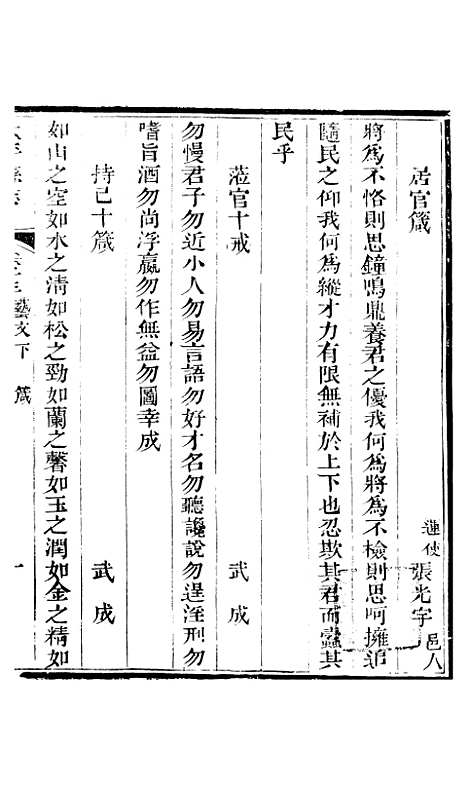 居官箴
運使張光宇邑人
將為不恪則思鐘鳴鼎養君之優我何為將為不檢則思呵擁追
隨民之仰我何為縱才力有限無補於上下也忍欺其君而蠹其
民乎
蒞官十戒 武成
勿慢君子勿近小人勿易言語勿好才名勿聽讒說勿逞淫刑勿
嗜旨酒勿尚浮贏勿作無益勿圖幸成
持己十箴 武成
如山之空如水之清如松之勁如蘭之馨如玉之潤如金之精如
藝文下 箴 一